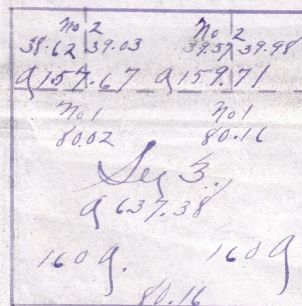 No 2 No 2
38.62 39.03 39.57 39.98
a 157.67 a 159.71
No 1 No 1
80.02 80.16
Sec 3.
a 637.38
160 a. 160 a
80.16